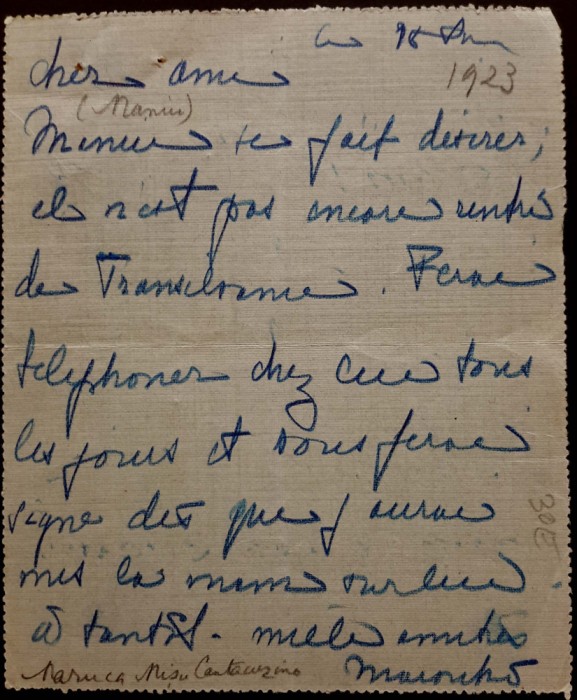 Ce 
cher ami 1923
(Maniu)
Maniu se fait désirer,
il n'est pas encore rentré
de Transilvanie. Ferai
téléphoner chez lui tous
les jours et vous ferai
signe dès que j'aurai
mis la main sur lui.
à tantôt. mille amitiés
Maruca Misu Cantacuzino